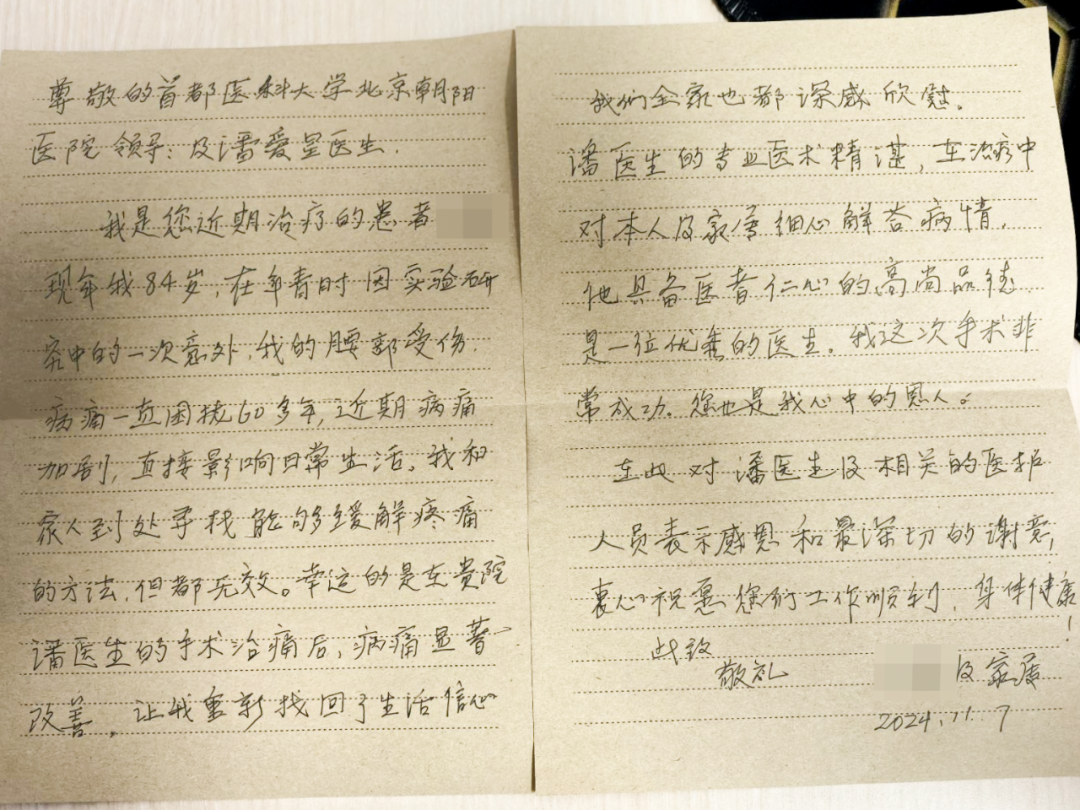 尊敬的首都医科大学北京朝阳
医院领导:及潘爱星医生.
我是您近期治疗的患者
现年我84岁,在年青时因实验研
究中的一次意外,我的腰部受伤.
病痛一直困扰60多年,近期病痛
加剧,直接影响日常生活。我和
家人到处寻找能够缓解疼痛
的方法,但都无效。幸运的是在贵院
潘医生的手术治痛后,病痛显著
改善。让我重新找回了生活信心
我们全家也都深感欣慰.
潘医生的专业医术精湛,在治疗中
对本人及家属细心解答病情.
他具备医者仁心的高尚品德
是一位优秀的医生。我这次手术非
常成功.您也是我心中的恩人。
在此对潘医生及相关的医护
人员表示感恩和最深切的谢意,
衷心祝愿您们工作顺利,身体健康!
此致
敬礼
及家属
2024.11.7